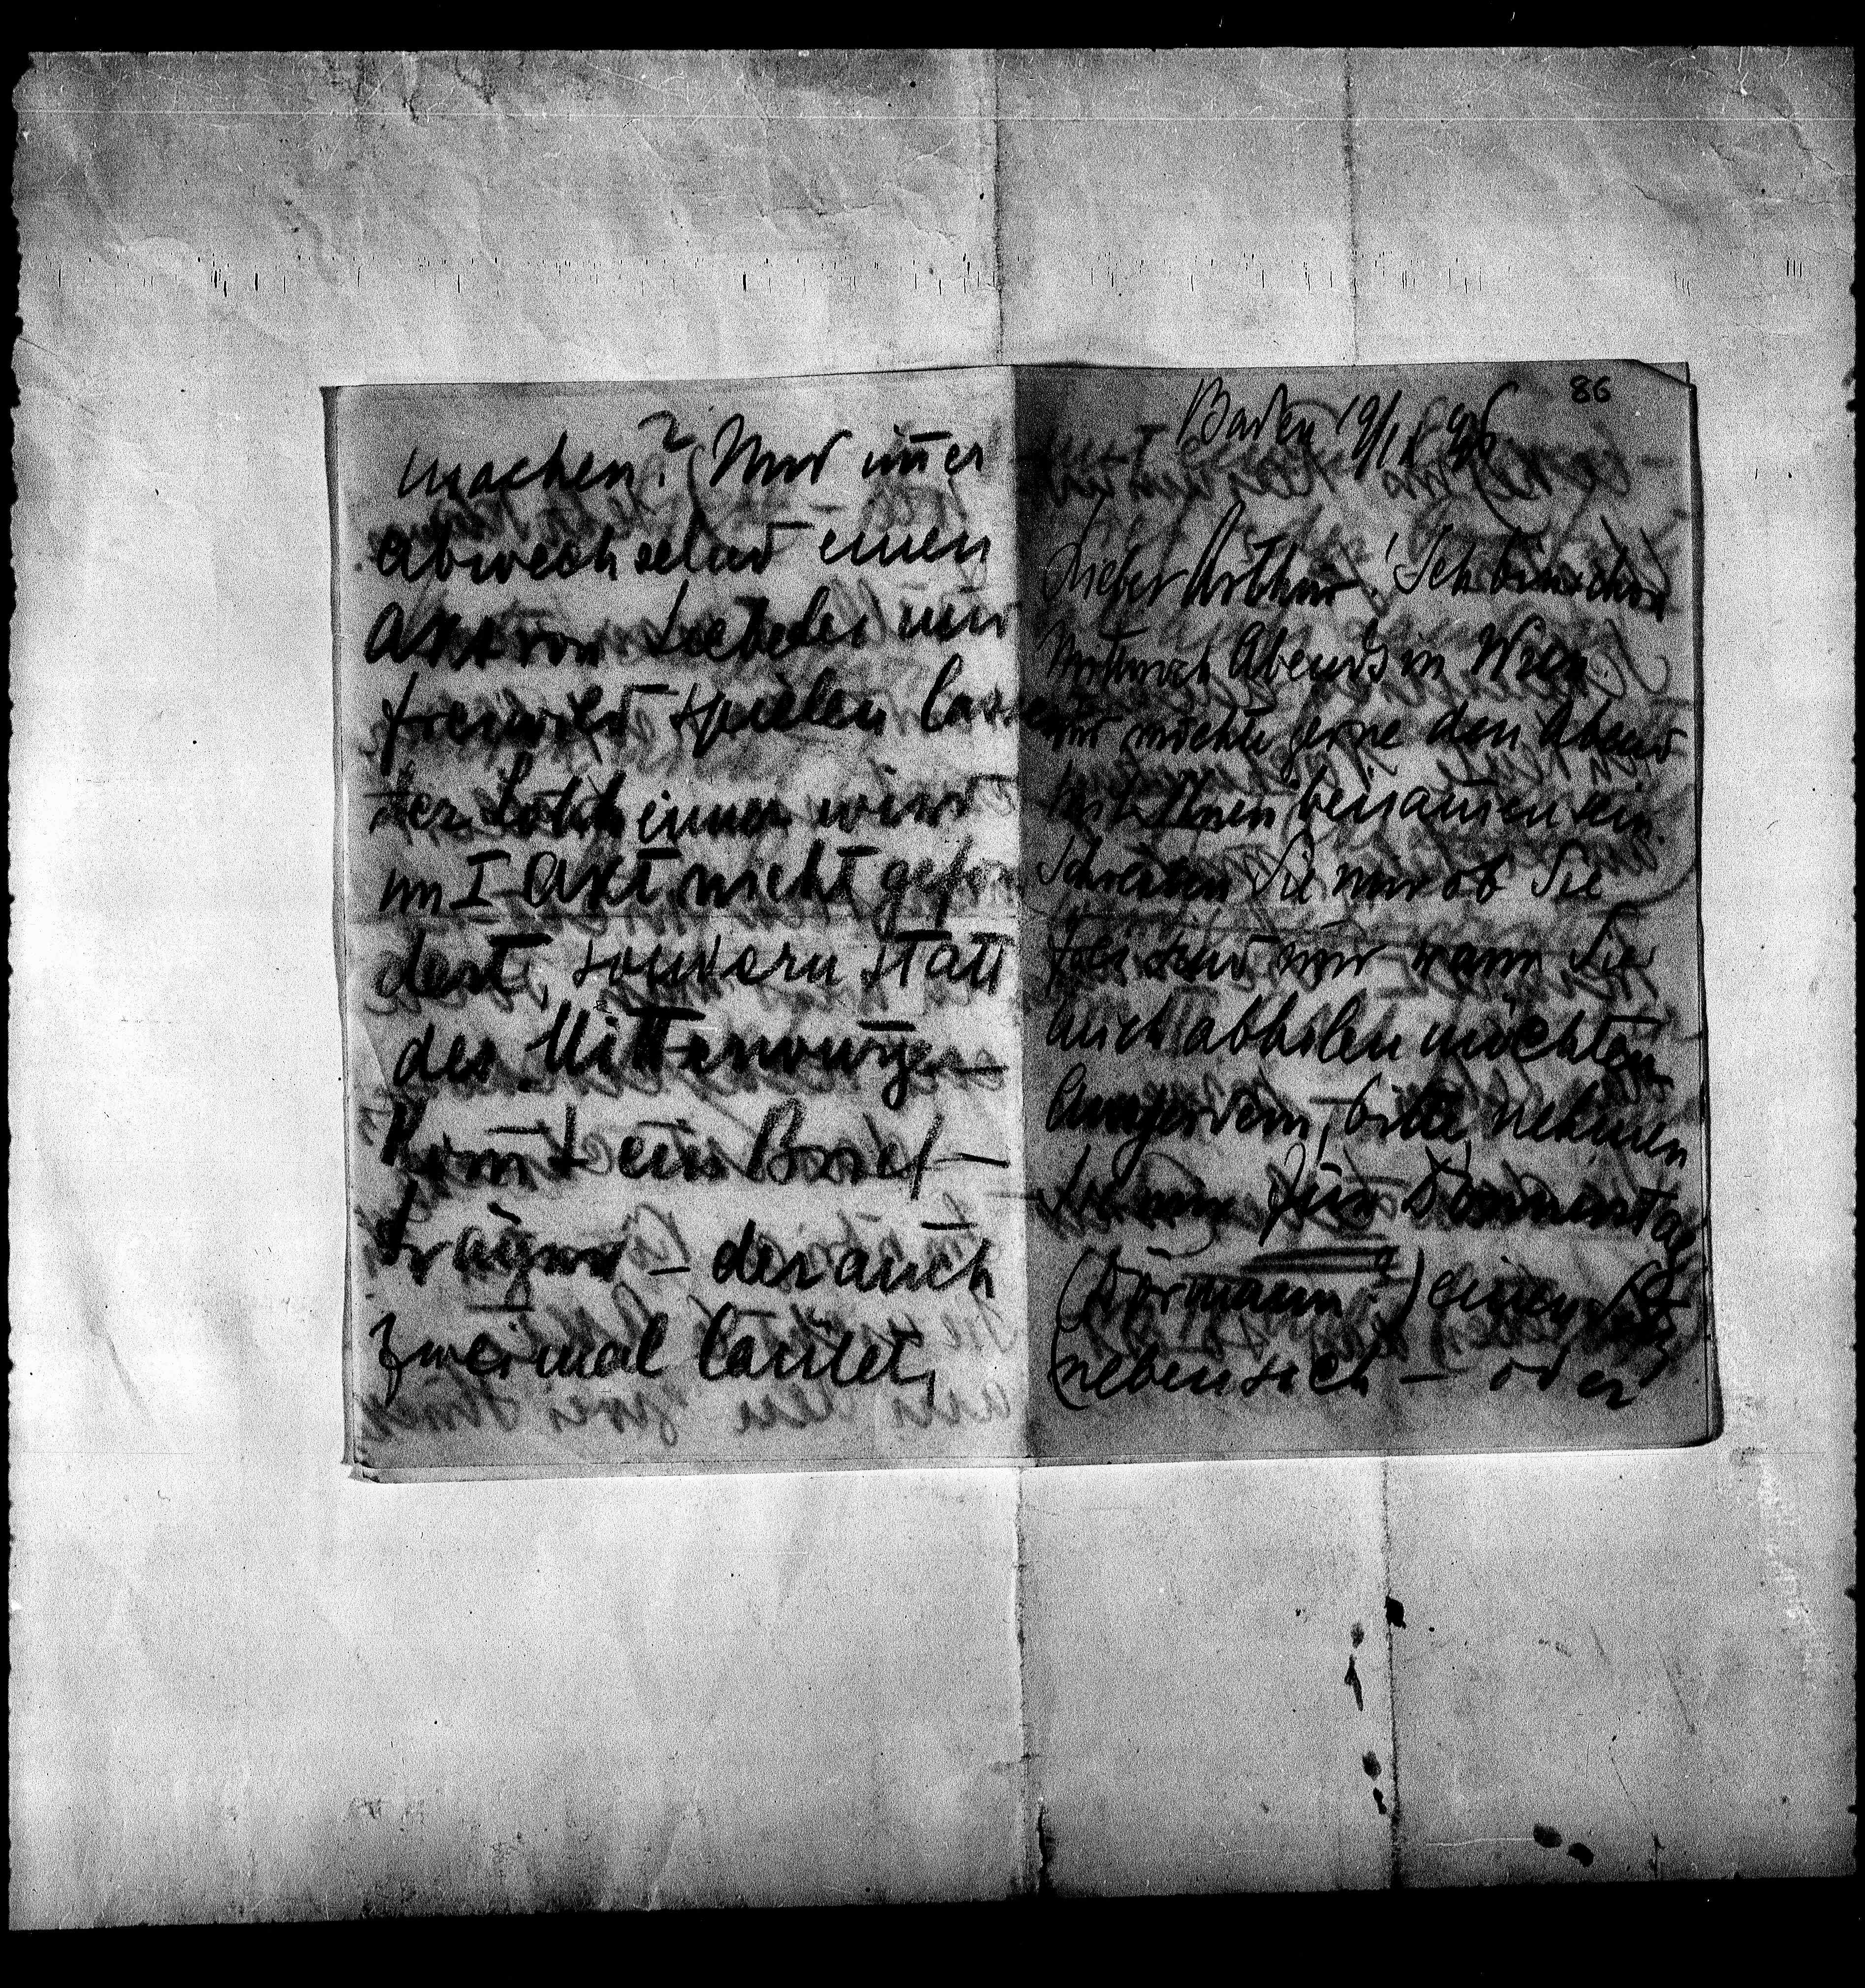 machen? Und im̄er
abwechselnd einen
Akt von Liebelei und
Freiwild spielen lassen
der Lobheimer wird
im I Akt nicht gefor
dert, sondern statt
des Mitterwurzer
kom̄t ein Brief –
träger – der auch
zweimal läutet,
86
Baden 19/X 96
Lieber Arthur! Ich bin schon
Mittwoch Abends in Wien
und möchte gerne den Abend
mit Ihnen beisam̄en sein.
Schreiben Sie mir ob Sie
frei sind und wann Sie
mich abholen möchten
Außerdem, bitte, nehmen
Sie mir für Donnerstag
(Dörmann?) einen Sitz
(neben sich – oder